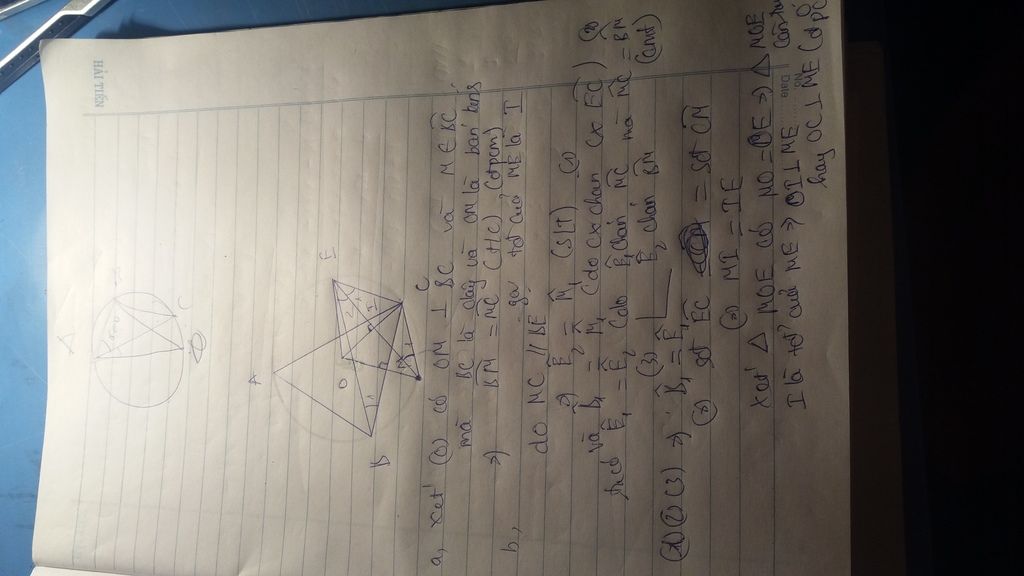 HẢI TIẾN
No
Date
A
E
O
B
C
M
a, xét (O) có OM ⊥ BC và M ∈ BC
mà BC là dây và OM là bán kính
=> BM = MC (t/c) (đpcm)
b, gọi tđ của ME là I
do MC // BE
=> E₂ = M₁ (slt) (1)
và B₁ = M₁ (do cx chắn cx EC) (2)
ta có E₁ = E₂ (do E₁ chắn MC mà MC = BM
(3) E₂ chắn BM (cmt)
(1) (2) (3) => B₁ = E₁
=> sđ EC = sđ CM
=> MI = IE
xét Δ MOE có MO = OE => Δ MOE
I là tđ của ME => OI ⊥ ME
hay OC ⊥ ME